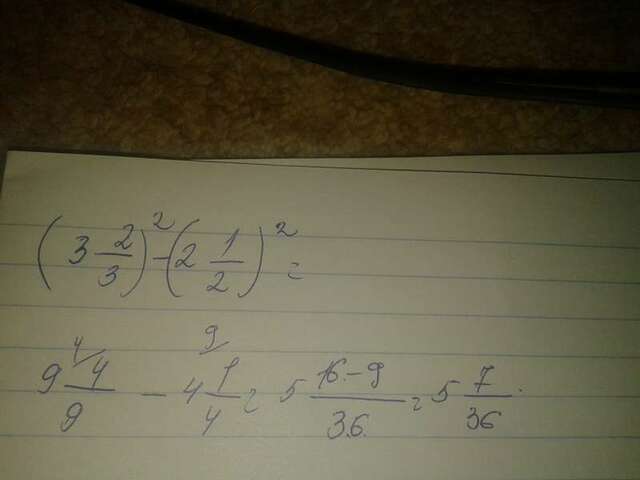 (3 2/3)² - (2 1/2)² =
9 4/9 - 4 1/4 = 5 16-9/36 = 5 7/36.